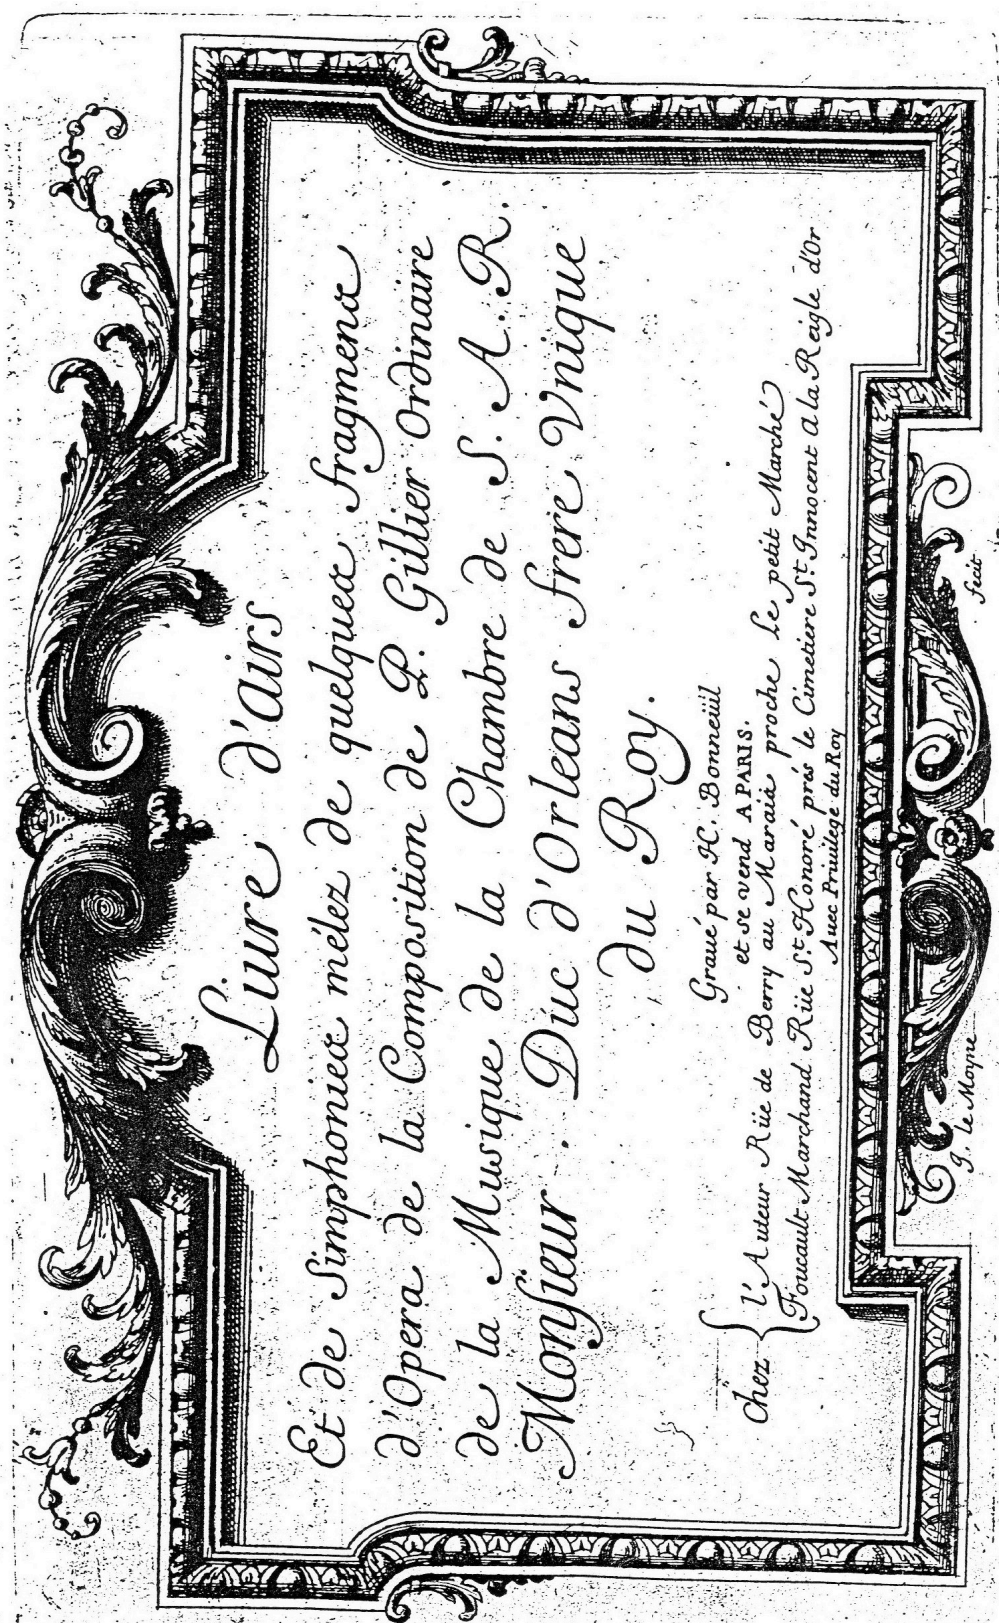 Liure d'Airs
Et de Simphonies mélez de quelques fragmens
d'Opera de la Composition de P. Gillier Ordinaire
de la Musique de la Chambre de S. A. R.
Monsieur. Duc d'Orleans frere Vnique
du Roy.
Graué par H. Bonneüil
et se vend A PARIS.
Chez { l'Auteur Rüe de Berry au Marais proche le petit Marché
Foucault Marchand Rüe St. Honoré prés le Cimetiere St. Innocent a la Reigle d'Or
Auec Priuilege du Roy
J. le Moyne fecit